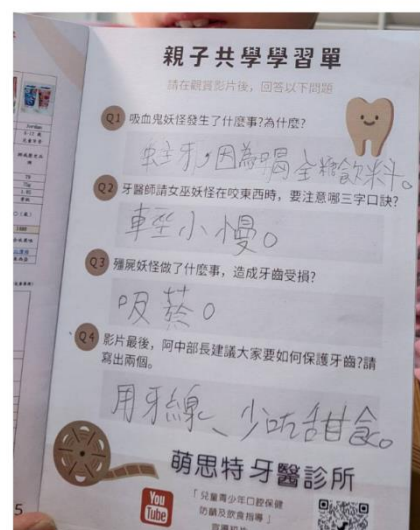 親子共學學習單
請在觀賞影片後，回答以下問題
Q1 吸血鬼妖怪發生了什麼事?為什麼?
蛀牙，因為喝全糖飲料。
Q2 牙醫師請女巫妖怪在咬東西時，要注意哪三字口訣?
輕小慢。
Q3 殭屍妖怪做了什麼事，造成牙齒受損?
吸菸。
Q4 影片最後，阿中部長建議大家要如何保護牙齒?請
寫出兩個。
用牙線、少吃甜食。
萌思特牙醫診所
You
Tube
「兒童青少年口腔保健
防齲及飲食指導」
5